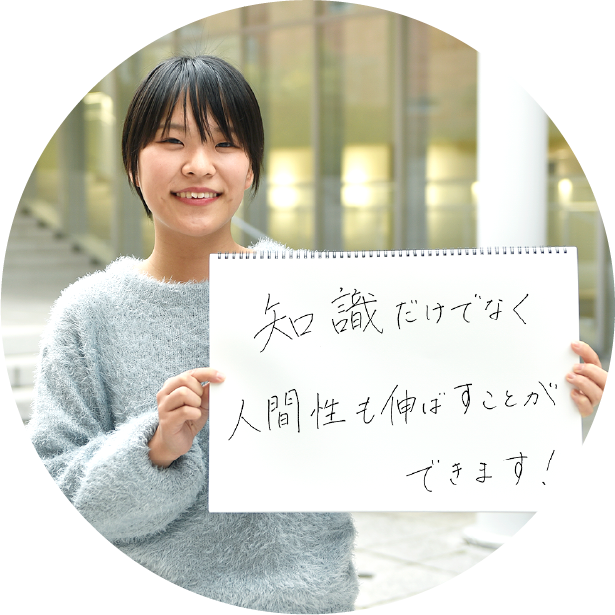 知識だけでなく
人間性も伸ばすことが
できます!